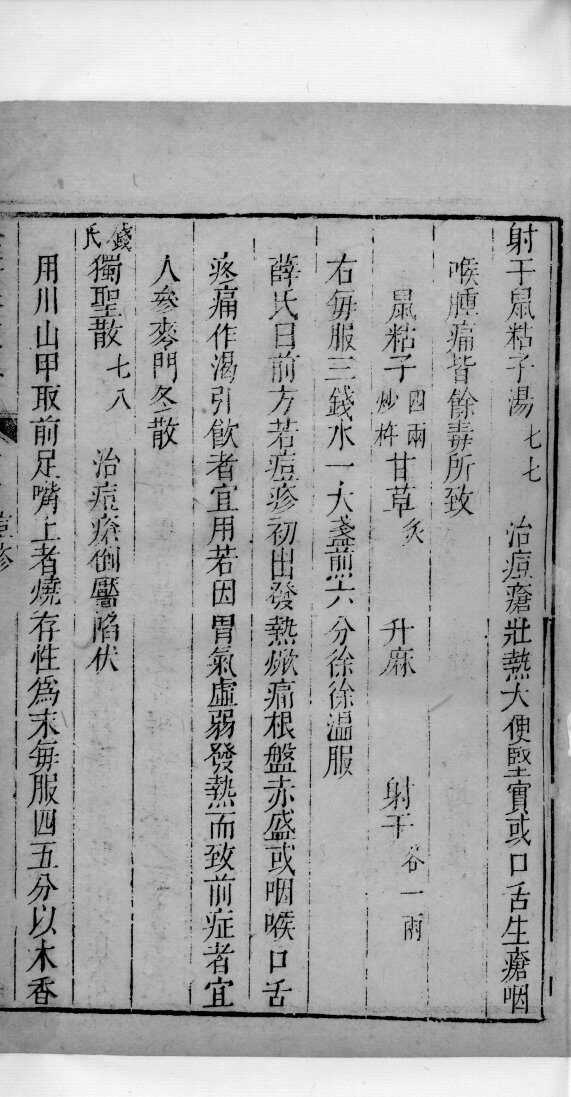 射干鼠粘子湯七七 治痘瘡壯熱大便堅實或口舌生瘡咽
喉腫痛皆餘毒所致
鼠粘子四兩炒杵 甘草炙 升麻 射干各一兩
右每服三錢水一大盞煎六分徐徐溫服
薛氏曰前方若痘疹初出發熱焮痛根盤赤盛或咽喉口舌
疼痛作渴引飲者宜用若因胃氣虛弱發熱而致前症者宜
人參麥門冬散
錢氏獨聖散七八 治痘瘡倒靨陷伏
用川山甲取前足嘴上者燒存性爲末每服四五分以木香